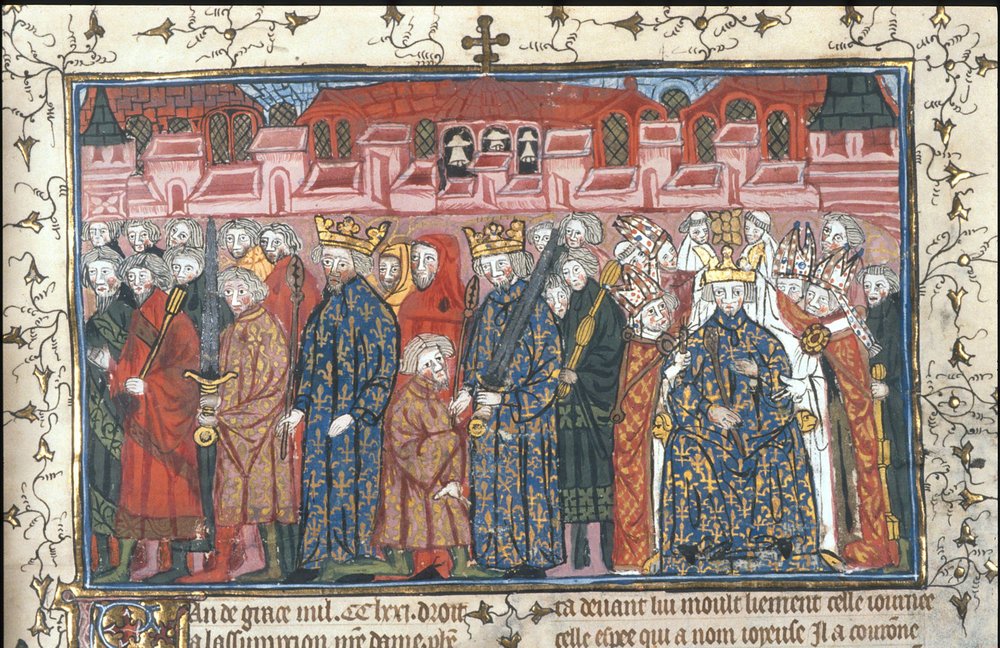 An de grace mil. CClxxi. droit
a lassumpcion nr̃e dame. phẽ
ta deuant lui moult liement celle iournee
celle espee qui a nom ioyeuse Il a couronne